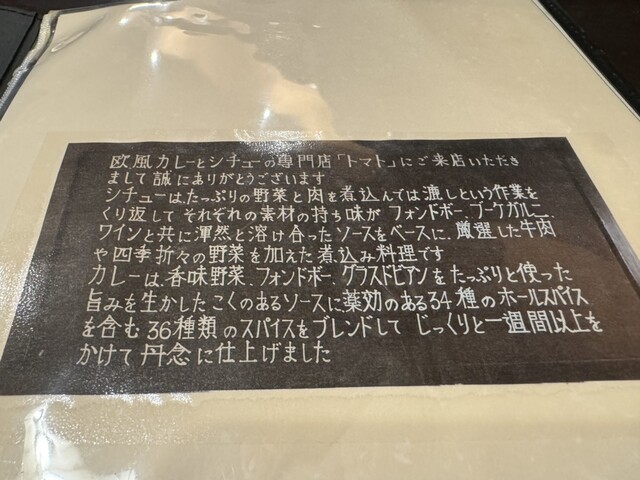 欧風カレーとシチューの専門店「トマト」にご来店いただき
まして誠にありがとうございます
シチューは、たっぷりの野菜と肉を煮込んでは漉しという作業を
くり返して それぞれの素材の持ち味が フォンドボー、ブーケガルニ、
ワインと共に渾然と溶け合ったソースをベースに、厳選した牛肉
や四季折々の野菜を加えた煮込み料理です
カレーは、香味野菜、フォンドボー、グラスドビアンをたっぷりと使った
旨みを生かしたこくのあるソースに薬効のある34種のホールスパイス
を含む36種類のスパイスをブレンドして じっくりと一週間以上を
かけて丹念に仕上げました